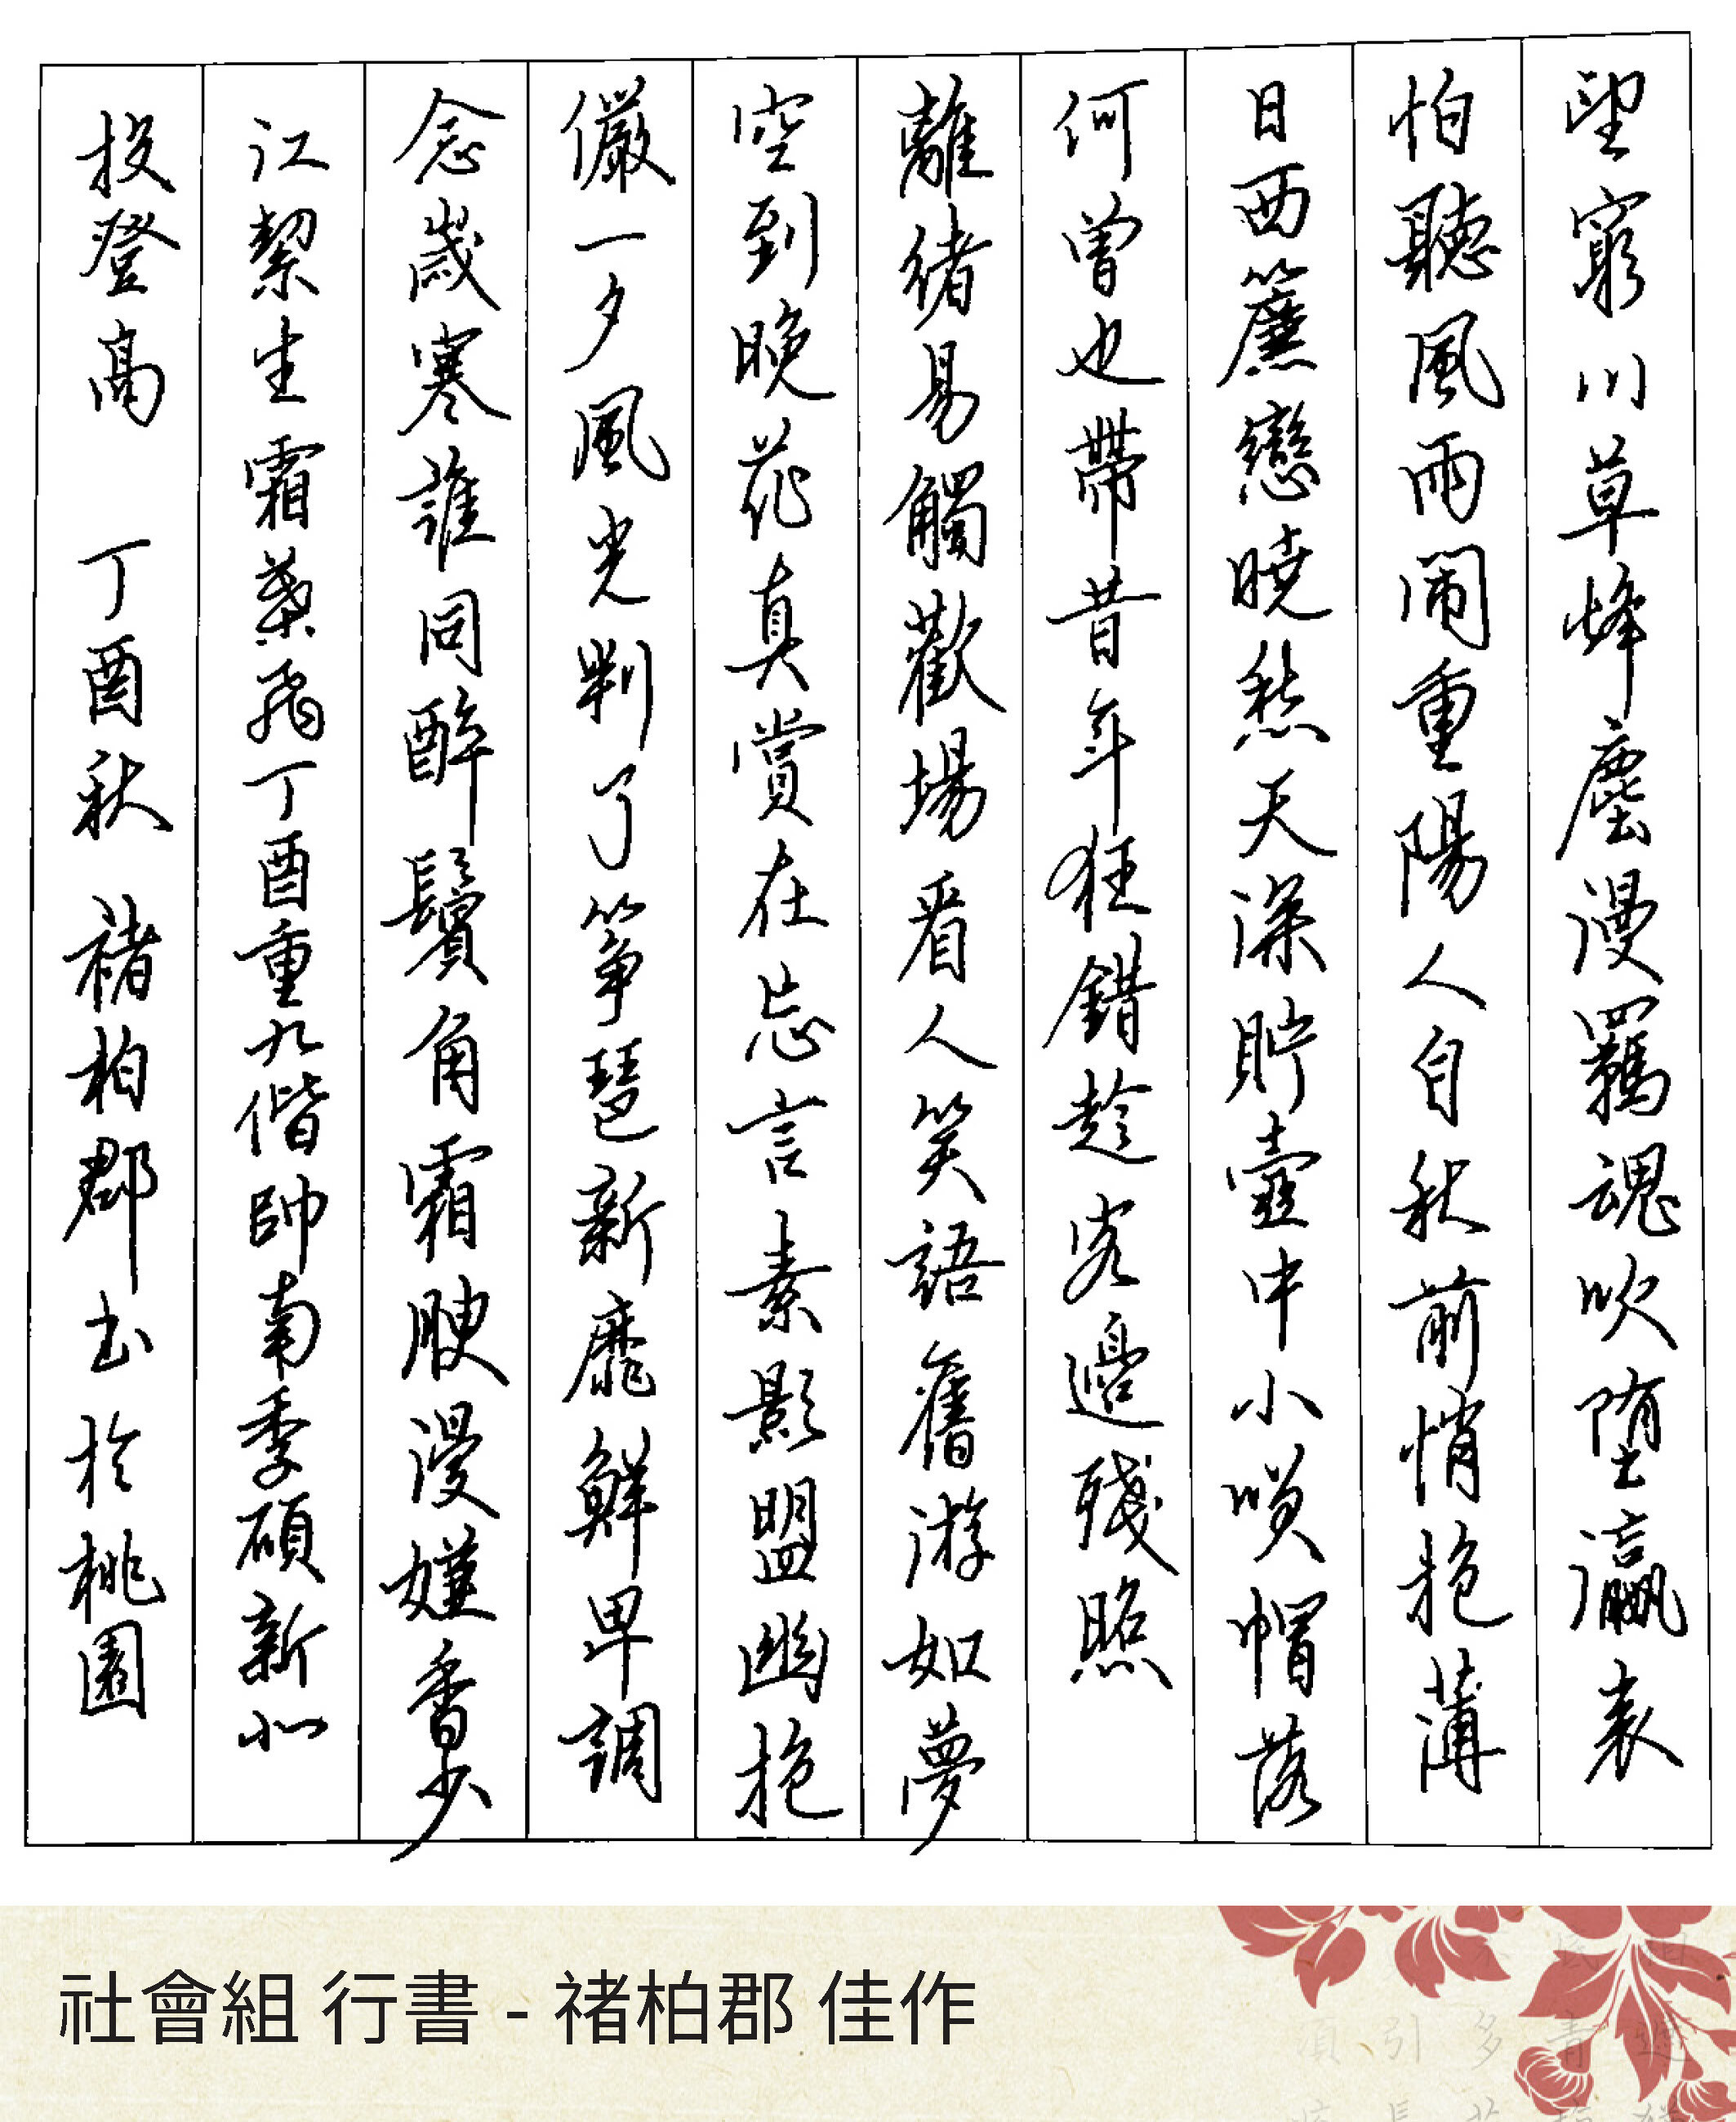 望窮川草烽塵漫羈魂吹墮瀛表
怕聽風雨鬧重陽人自秋前悄抱薄
日西簾戀曉愁天深貯壺中小嘆帽落
何曾也帶昔年狂錯趁客邊殘照
離緒易觸歡場看人笑語舊游如夢
空到晚花真賞在忘言素影盟幽抱
儼一夕風光判了箏琶新靡鮮卑調
念歲寒誰同醉鬢角霜腴漫嫌香少
江絜生霜葉飛丁酉重九偕帥南季碩新北
投登高 丁酉秋 褚柏郡书於桃園
社會組 行書 - 褚柏郡 佳作